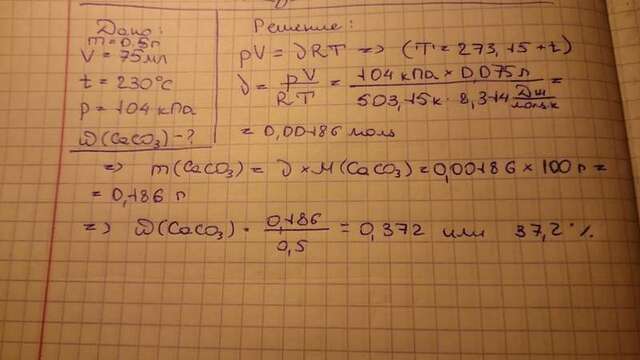 Дано:
m = 0,5 г
V = 75 мл
t = 230°C
p = 104 кПа
ω(CaCO₃) - ?
Решение:
pV = νRT => (T = 273,15 + t)
ν = pV / RT = 104 кПа × 0,075 л / 503,15 К · 8,314 Дж/моль·К =
= 0,00186 моль
=> m(CaCO₃) = ν × M(CaCO₃) = 0,00186 × 100 г =
= 0,186 г
=> ω(CaCO₃) = 0,186 / 0,5 = 0,372 или 37,2 %